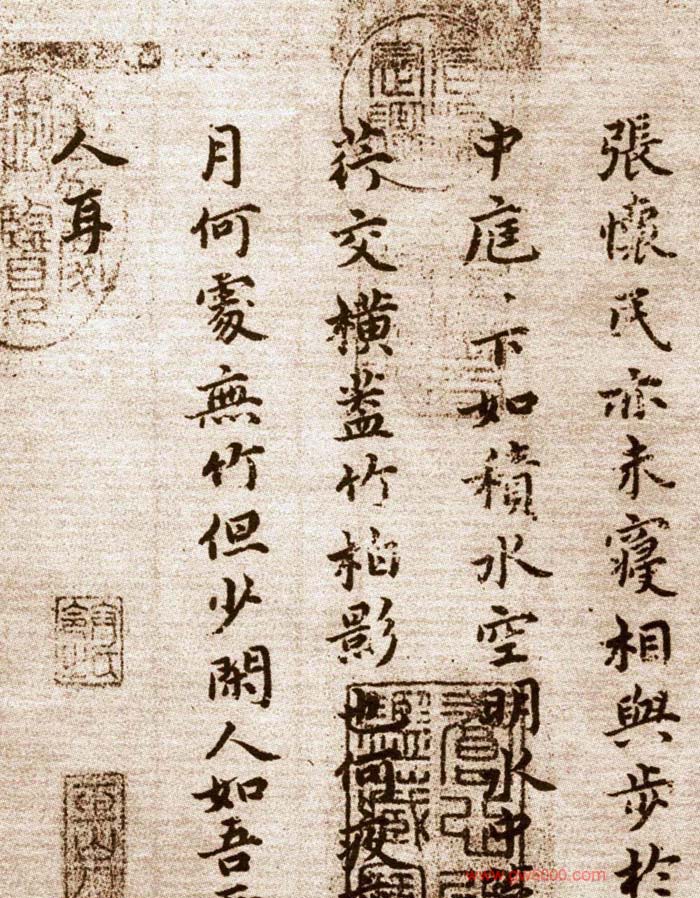 張懷民亦未寢相與步於
中庭、下如積水空明水中
荇交橫蓋竹柏影也何夜
月何處無竹但少閑人如吾
人耳